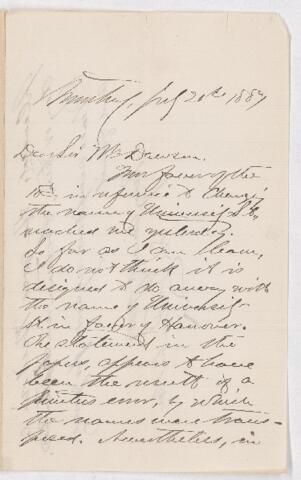 July 20th 1887
Dear Sir Mr Dawson.
Your favor of the
in reference to changing
the name of University St.,
reached me yesterday.
So far as I can learn,
I do not think it is
designed to do away with
the name of Universi-
ty in favor of Hanover.
The statement in the
papers, appears to have
been the result of a
printers error, by which
the names were trans-
posed. Nevertheless, in